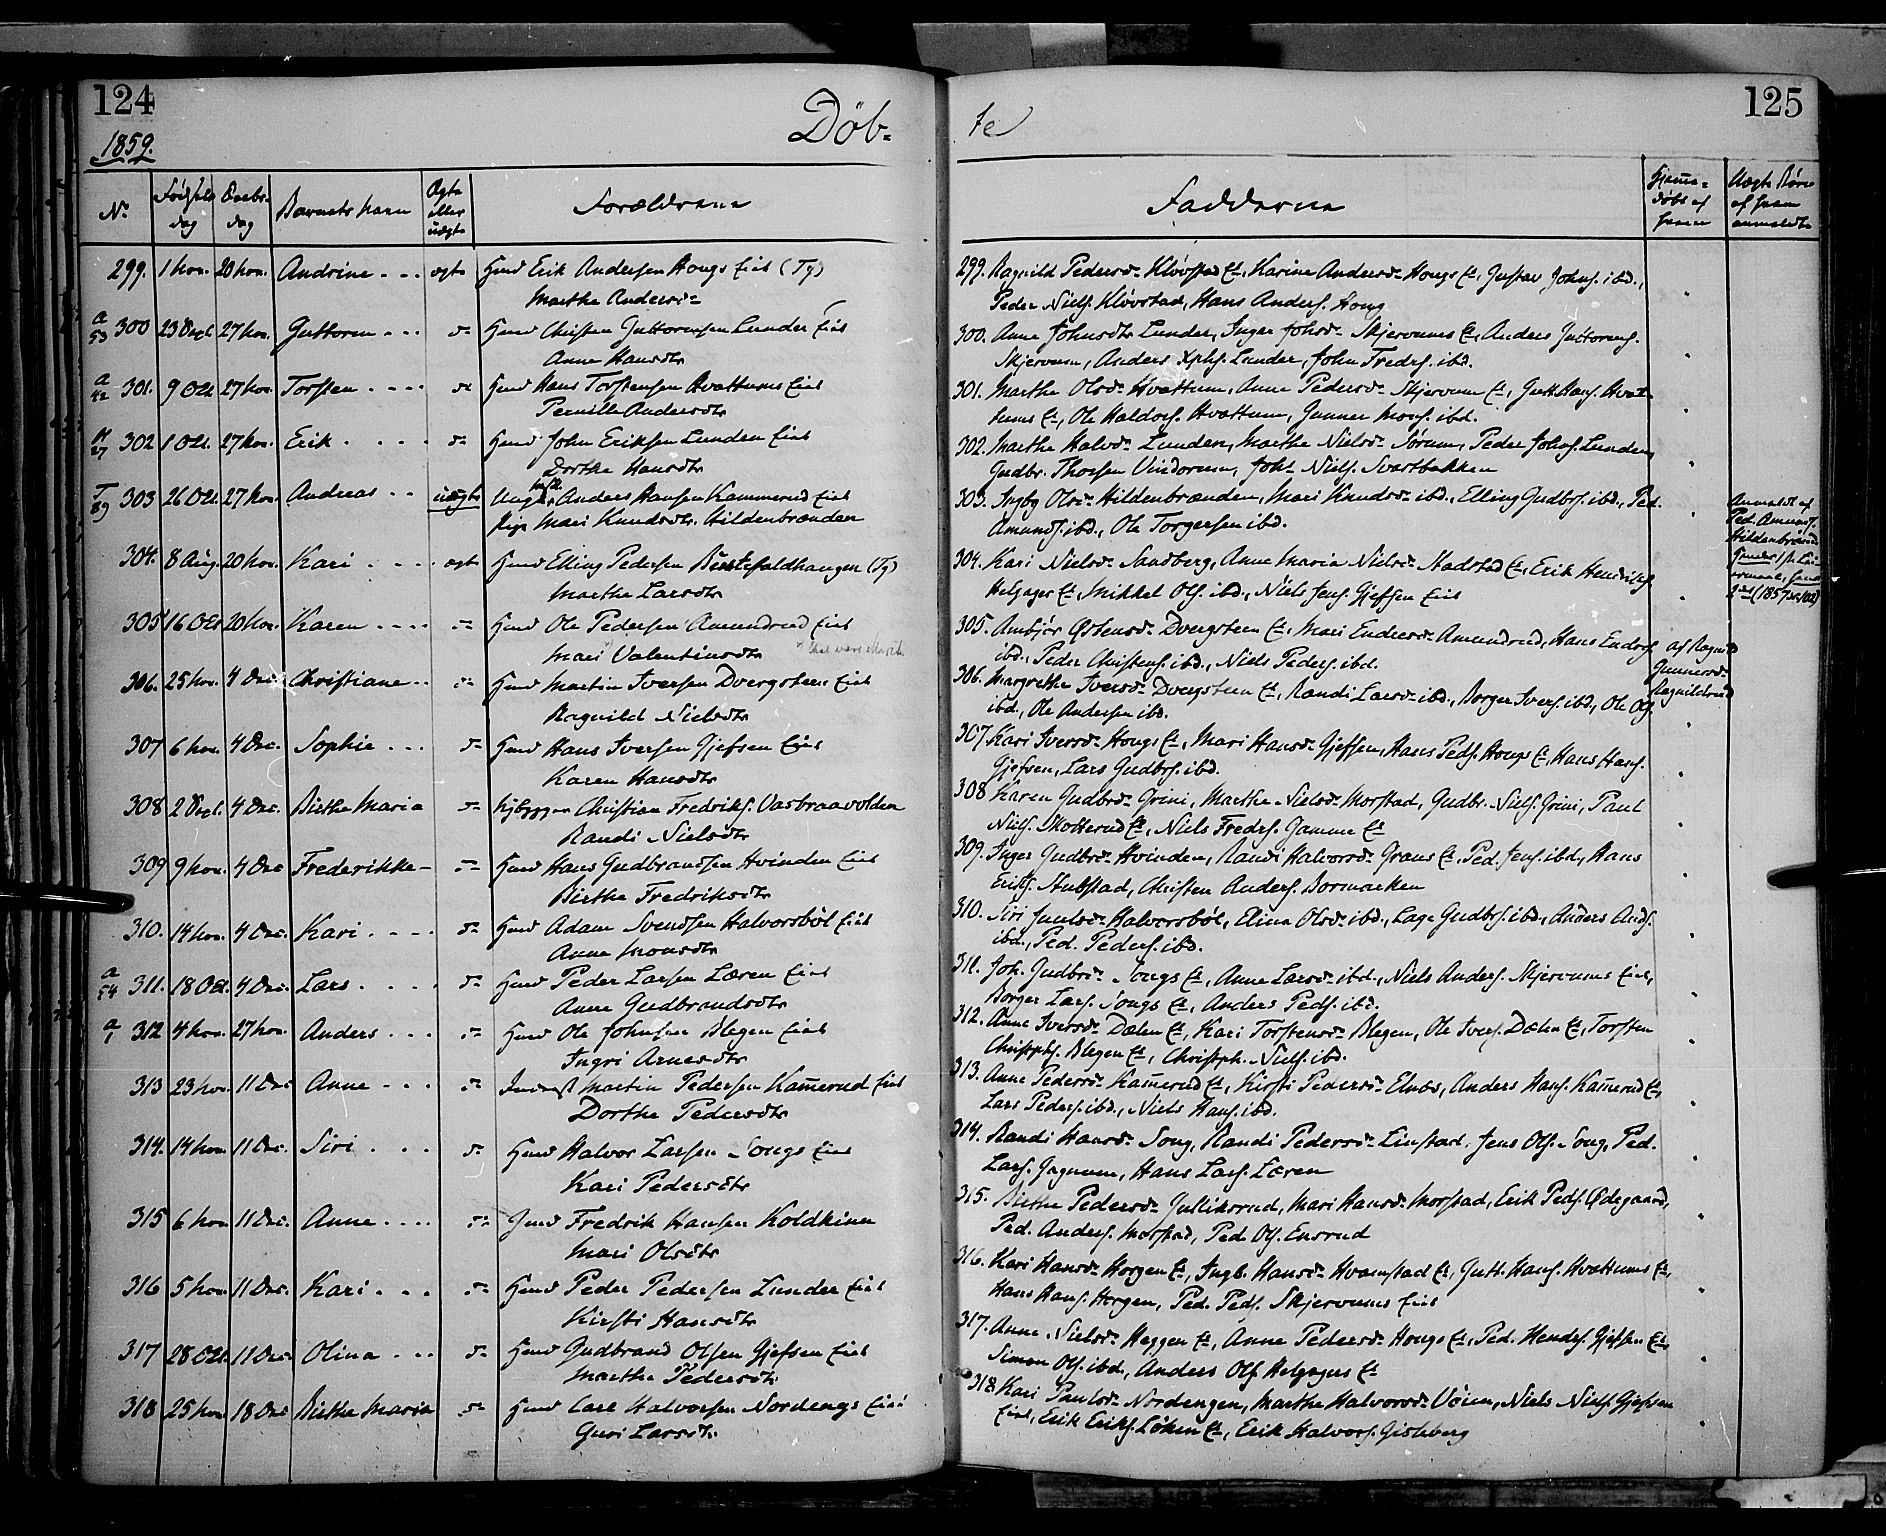 124
1859.
Døb-
No
Fødsels
dag
Daabs-
dag
Barnets Navn
Ægte
eller
uægte
Forældrene
299. 1 Nov. 20 Nov. Andrine - - - ægte Huusm Erik Andersen Hougs Eiet (Tg)
Marthe Andersd-
a 53 300 23 Octb. 27 Nov. Guttorm - - - d- Huusm Christen Guttormsen Lunder Eiet
Anne Hansdtr
a 42 301. 9 Oct. 27 Nov. Torsten - - - - d- Huusm Hans Torstensen Hvattums Eiet
Pernille Andersdtr
27 302 1 Oct. 27 Nov. Erik - - - - d- Huusm John Eriksen Lunden Eiet
Dorthe Hansdtr
T 89 303 26 Oct. 27 Nov. Andreas - - uægte Ungk. Anders Hansen Kammerud Eiet
Pige Mari Knudsdtr. Hildenbrænden
304. 8 Aug. 20 Nov. Kari - - - - ægte Huusm Elling Pedersen (Tg)
Marthe Larsdtr
305 16 Oct 20 Nov. Karen - - - - d- Huusm Ole Pedersen Amundrud Eiet
Mari Valentinsdtr
306. 25 Nov. 4 Dec Christiane - - d- Huusm Martin Iversen Dvergsteen Eiet
Ragnild Nielsdtr
307 6 Nov. 4 Dec. Sophie - - - d- Huusm Hans Iversen Gjefsen Eiet
Karen Hansdtr
308 2 Octb. 4 Dec. Birthe Maria d- Christian Fredriks. Vasbraavolden
Randi Nielsdtr
309 9 Nov. 4 Dec Frederikke - d- Huusm Hans Gudbrandsen Hvinden Eiet
Birthe Fredriksdtr
310. 14 Nov. 4 Dec. Kari - - - - d- Huusm Adam Svendsen Halvorsbøl Eiet
Anne Monsdtr
a 54 311. 18 Oct. 4 Dec. Lars - - - - d- Huusm Peder Larsen Læren Eiet
Anne Gudbrandsdtr
a 1 312 4 Nov. 27 Nov. Anders - - - d- Huusm Ole Johnsen Blegen Eiet
Ingri Arnesdtr
313 23 Nov. 11 Dec Anne - - - d- Inderst Martin Pedersen Kam̄erud Eiet
Dorthe Pedersdtr
314. 14 Nov. 11 Dec. Siri - - - d- Huusm Halvor Larsen Songs Eiet
Kari Pedersdtr
315 6 Nov 11 Dec. Anne - - - - d- Fredrik Hansen Koldkinn
Mari Olsdtr
316 5 Nov 11 Dec. Kari - - - d- Huusm Peder Pedersen Lunder Eiet
Kirsti Hansdtr
317 28 Oct. 11 Dec Olina - - - d- Huusm Gudbrand Olsen Gjefsen Eiet
Marthe Pedersdtr
318 25 Nov 18 Dec Birthe Maria d- Huusm Carl Halvorsen Nordengs Eiet
Guri Larsdtr.
125
te
Fadderne
Hjem̄e-
døbt af
hvem
Uægte Børn
af hvem
anmeldte
299. Ragnild Pedersd- Kløvstad Et, Karine Andersd- Hougs Et, Gustav Johns. ibd.,
Peder Niels. Kløvstad, Hans Anders. Houg
300. Anne Johnsdtr Lunder, Inger Johsd- Skjervums Et, Anders Guttorms.
Skjervum, Anders Xphs. Lunder, John Freds. ibd.
301. Marthe Olsd- Hvattum, Anne Pedersd- Skjervum Et, Gutt. Hans. Hvat-
tums Et, Ole Haldors. Hvattum, Gunner Mons. ibd.
302. Marthe Halvd- Lunden, Marthe Nielsd- Sørum, Peder Johns. Lunden
Gudbr. Thorsen Vindorum, Joh. Niels. Svartbakken
303. Ingbg Olsd- Hildenbrænden, Mari Knudsd- ibd., Elling Gudbrs. ibd., Ped.
Amunds. ibd., Ole Torgersen ibd.
Anmeldt af
Ped. Amunds.
Hildenbrænd.
304. Kari Nielsd- Sandberg, Anne Maria Nielsd- Hadstad Et, Erik Hendriks.
Helgager Et, Mikkel Ols. ibd., Niels Jens. Gjefsen Eiet
305. Ambjør Østensd- Dvergsteen Et, Mari Endresd- Amundrud, Hans Endrs.
ibd., Peder Christens. ibd., Niels Peders. ibd.
af Ragnild
Gunnersd-
Ragnildrud
306. Margrethe Iversd- Dvergsteen Et, Randi Larsd- ibd., Borger Ivers. ibd., Ole Ols.
ibd., Ole Andersen ibd.
307 Kari Iversd- Hougs Et, Mari Hansd- Gjefsen, Hans Peds. Hougs Et, Hans Hans.
Gjefsen, Lars Gudbrs. ibd.
308 Karen Gudbrd- Grini, Marthe Nielsd- Morstad, Gudbr. Niels. Grini, Paul
Niels. Skotterud Et, Niels Freds. Gamme Et
309. Inger Gudbrd- Hvinden, Randi Halvorsd- Grans Et, Ped. Jens. ibd., Hans
Eriks. Stubstad, Christen Anders. Bormarken
310. Siri Juulsd- Halvorsbøl, Elina Olsd- ibd., Lage Gudbrs. ibd., Anders Ands.
ibd., Ped. Peders. ibd.
311. Joh. Gudbrd- Songs Et, Anne Larsd- ibd., Niels Anders. Skjervums Eiet,
Borger Lars. Songs Et, Anders Peds. ibd.
312. Anne Iversd- Dælen Et, Kari Torstensd- Blegen, Ole Ivers. Dælen Et, Torsten
Christphs. Blegen Et, Christph. Niels. ibd.
313. Anne Pedersd- Kam̄erud Et, Kirsti Pedersd- Elnæs, Anders Hans. Kam̄erud Et,
Lars Peders. ibd., Niels Hans. ibd.
314. Randi Hansd- Song, Randi Pedersd- Linstad, Jens Ols. Song, Ped.
Lars. Gagnum, Hans Lars. Læren
315. Birthe Pedersd- Julliksrud, Mari Hansd- Morstad, Erik Peds. Ødegaard,
Ped. Anders. Morstad, Ped. Ols. Ensrud
316. Kari Hansd- Horgen Et, Ingb. Hansd- Hvamstad Et, Gutt. Hans. Hvattums Et,
Hans Hans. Horgen, Ped. Peds. Skjervums Eiet
317. Anne Nielsd- Heggen Et, Anne Pedersd- Hougs Et, Ped. Hends. Gjefsen Et,
Simon Ols. ibd., Anders Ols. Helgagers Et
318 Kari Paulsd- Nordengen, Marthe Halvorsd- Vøien, Niels Niels. Gjefsen
Eiet, Erik Eriks. Løken Et, Erik Halvors. Gisleberg